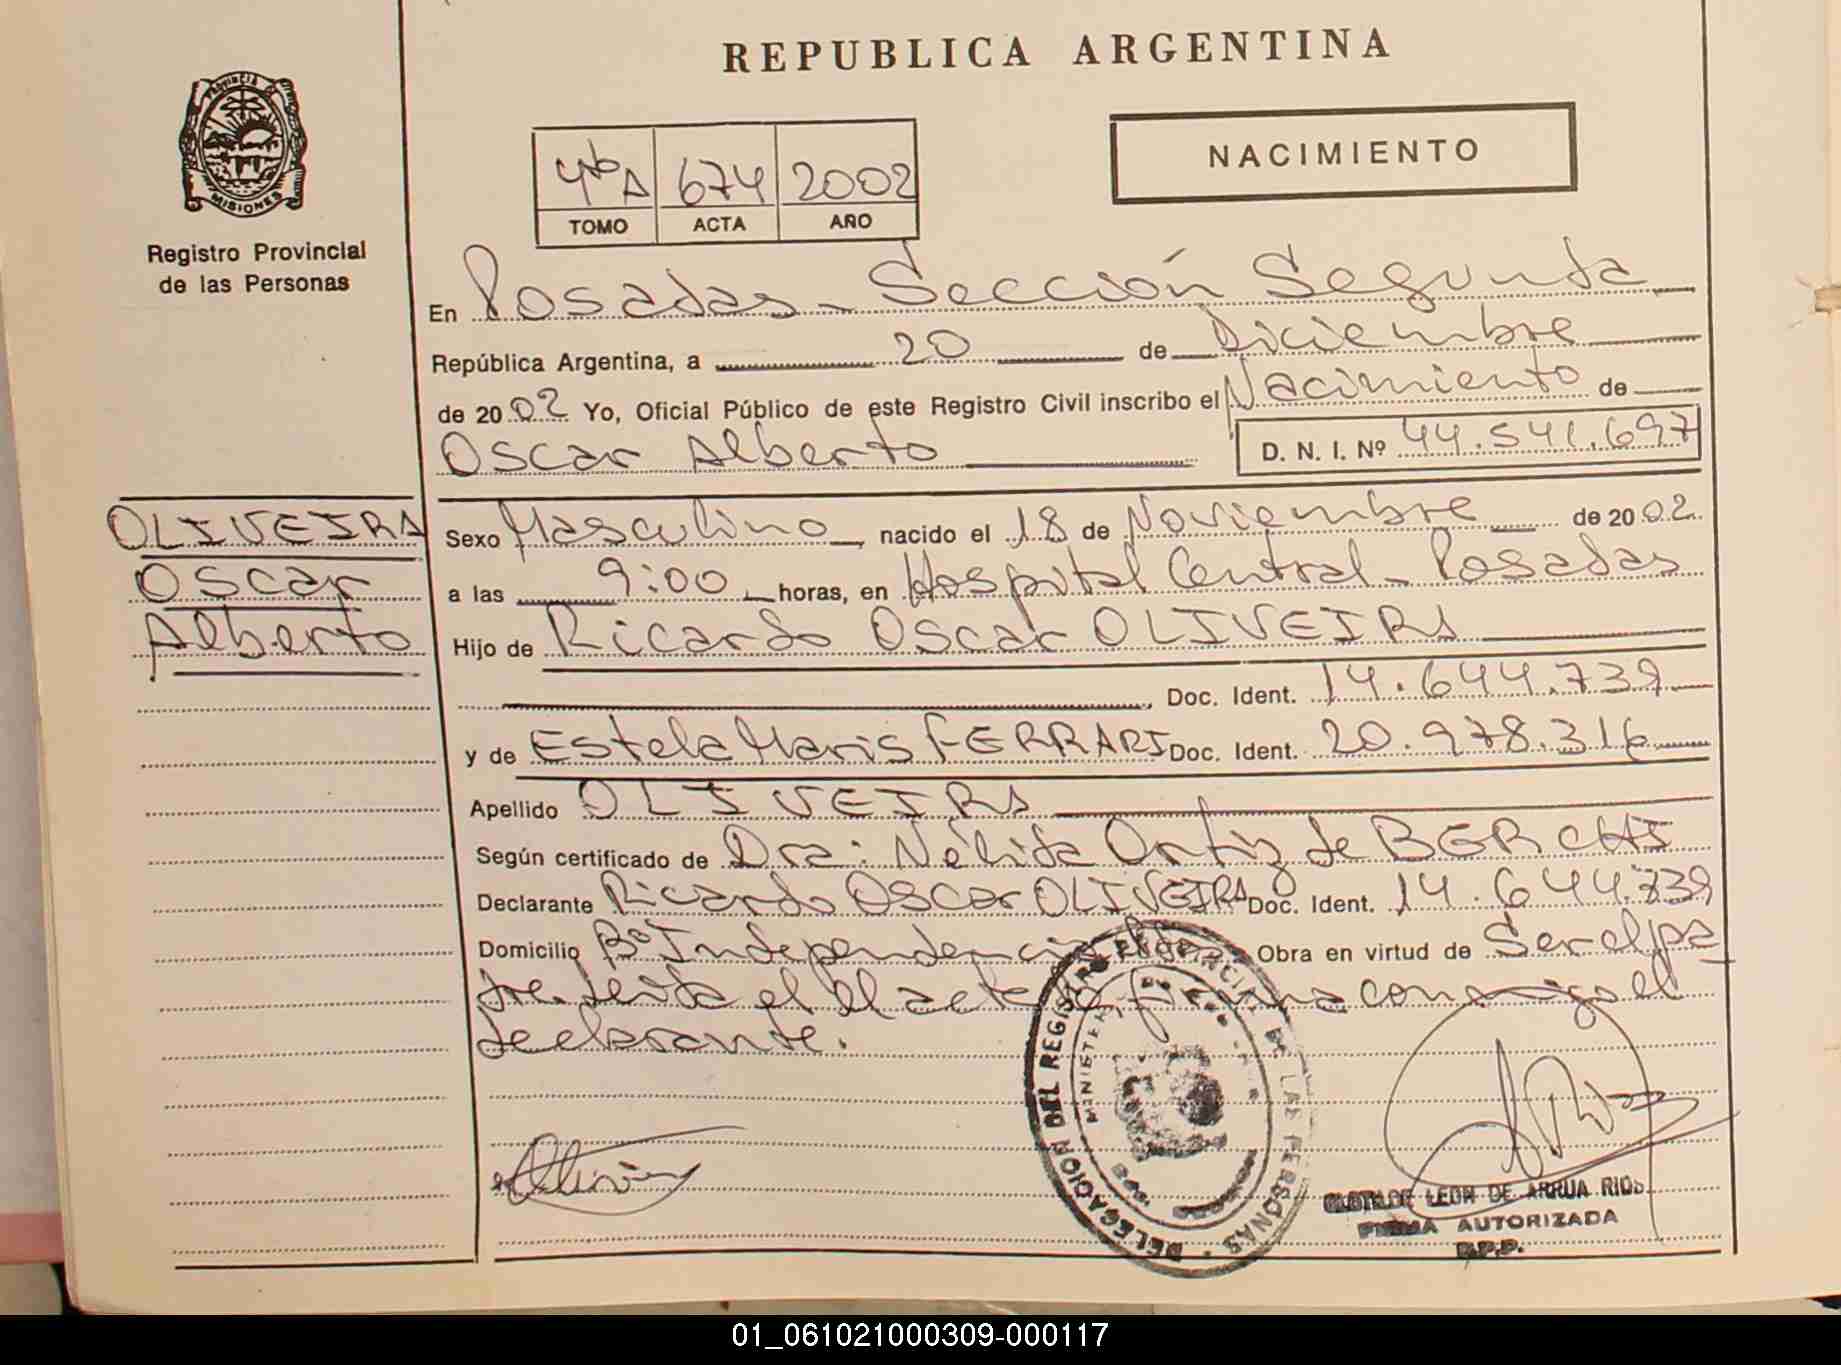 REPUBLICA ARGENTINA
PROVINCIA DE
MISIONES
Registro Provincial
de las Personas
NACIMIENTO
4to A 674 2002
TOMO ACTA AÑO
En Posadas - Sección Segunda
República Argentina, a 20 de Diciembre
de 2002 Yo, Oficial Público de este Registro Civil inscribo el Nacimiento de
Oscar Alberto D. N. I. Nº 44.541.697
OLIVEIRA
Oscar
Alberto
Sexo Masculino, nacido el 18 de Noviembre de 2002.
a las 9:00 horas, en Hospital Central - Posadas
Hijo de Ricardo Oscar OLIVEIRA
Doc. Ident. 14.644.739
y de Estela Maris FERRARI Doc. Ident. 20.978.316
Apellido OLIVEIRA
Según certificado de Dra. Nélida Ortiz de BERCHI
Declarante Ricardo Oscar OLIVEIRA Doc. Ident. 14.644.739
Domicilio Bº Independencia Obra en virtud de Ser el pa
dre. Leída el acta, firma conmigo el
declarante.
DELEGACION DEL REGISTRO PROVINCIAL DE LAS PERSONAS
CLOTILDE LEON DE ARRUA RIOS
FIRMA AUTORIZADA
R.P.P.
01_061021000309-000117